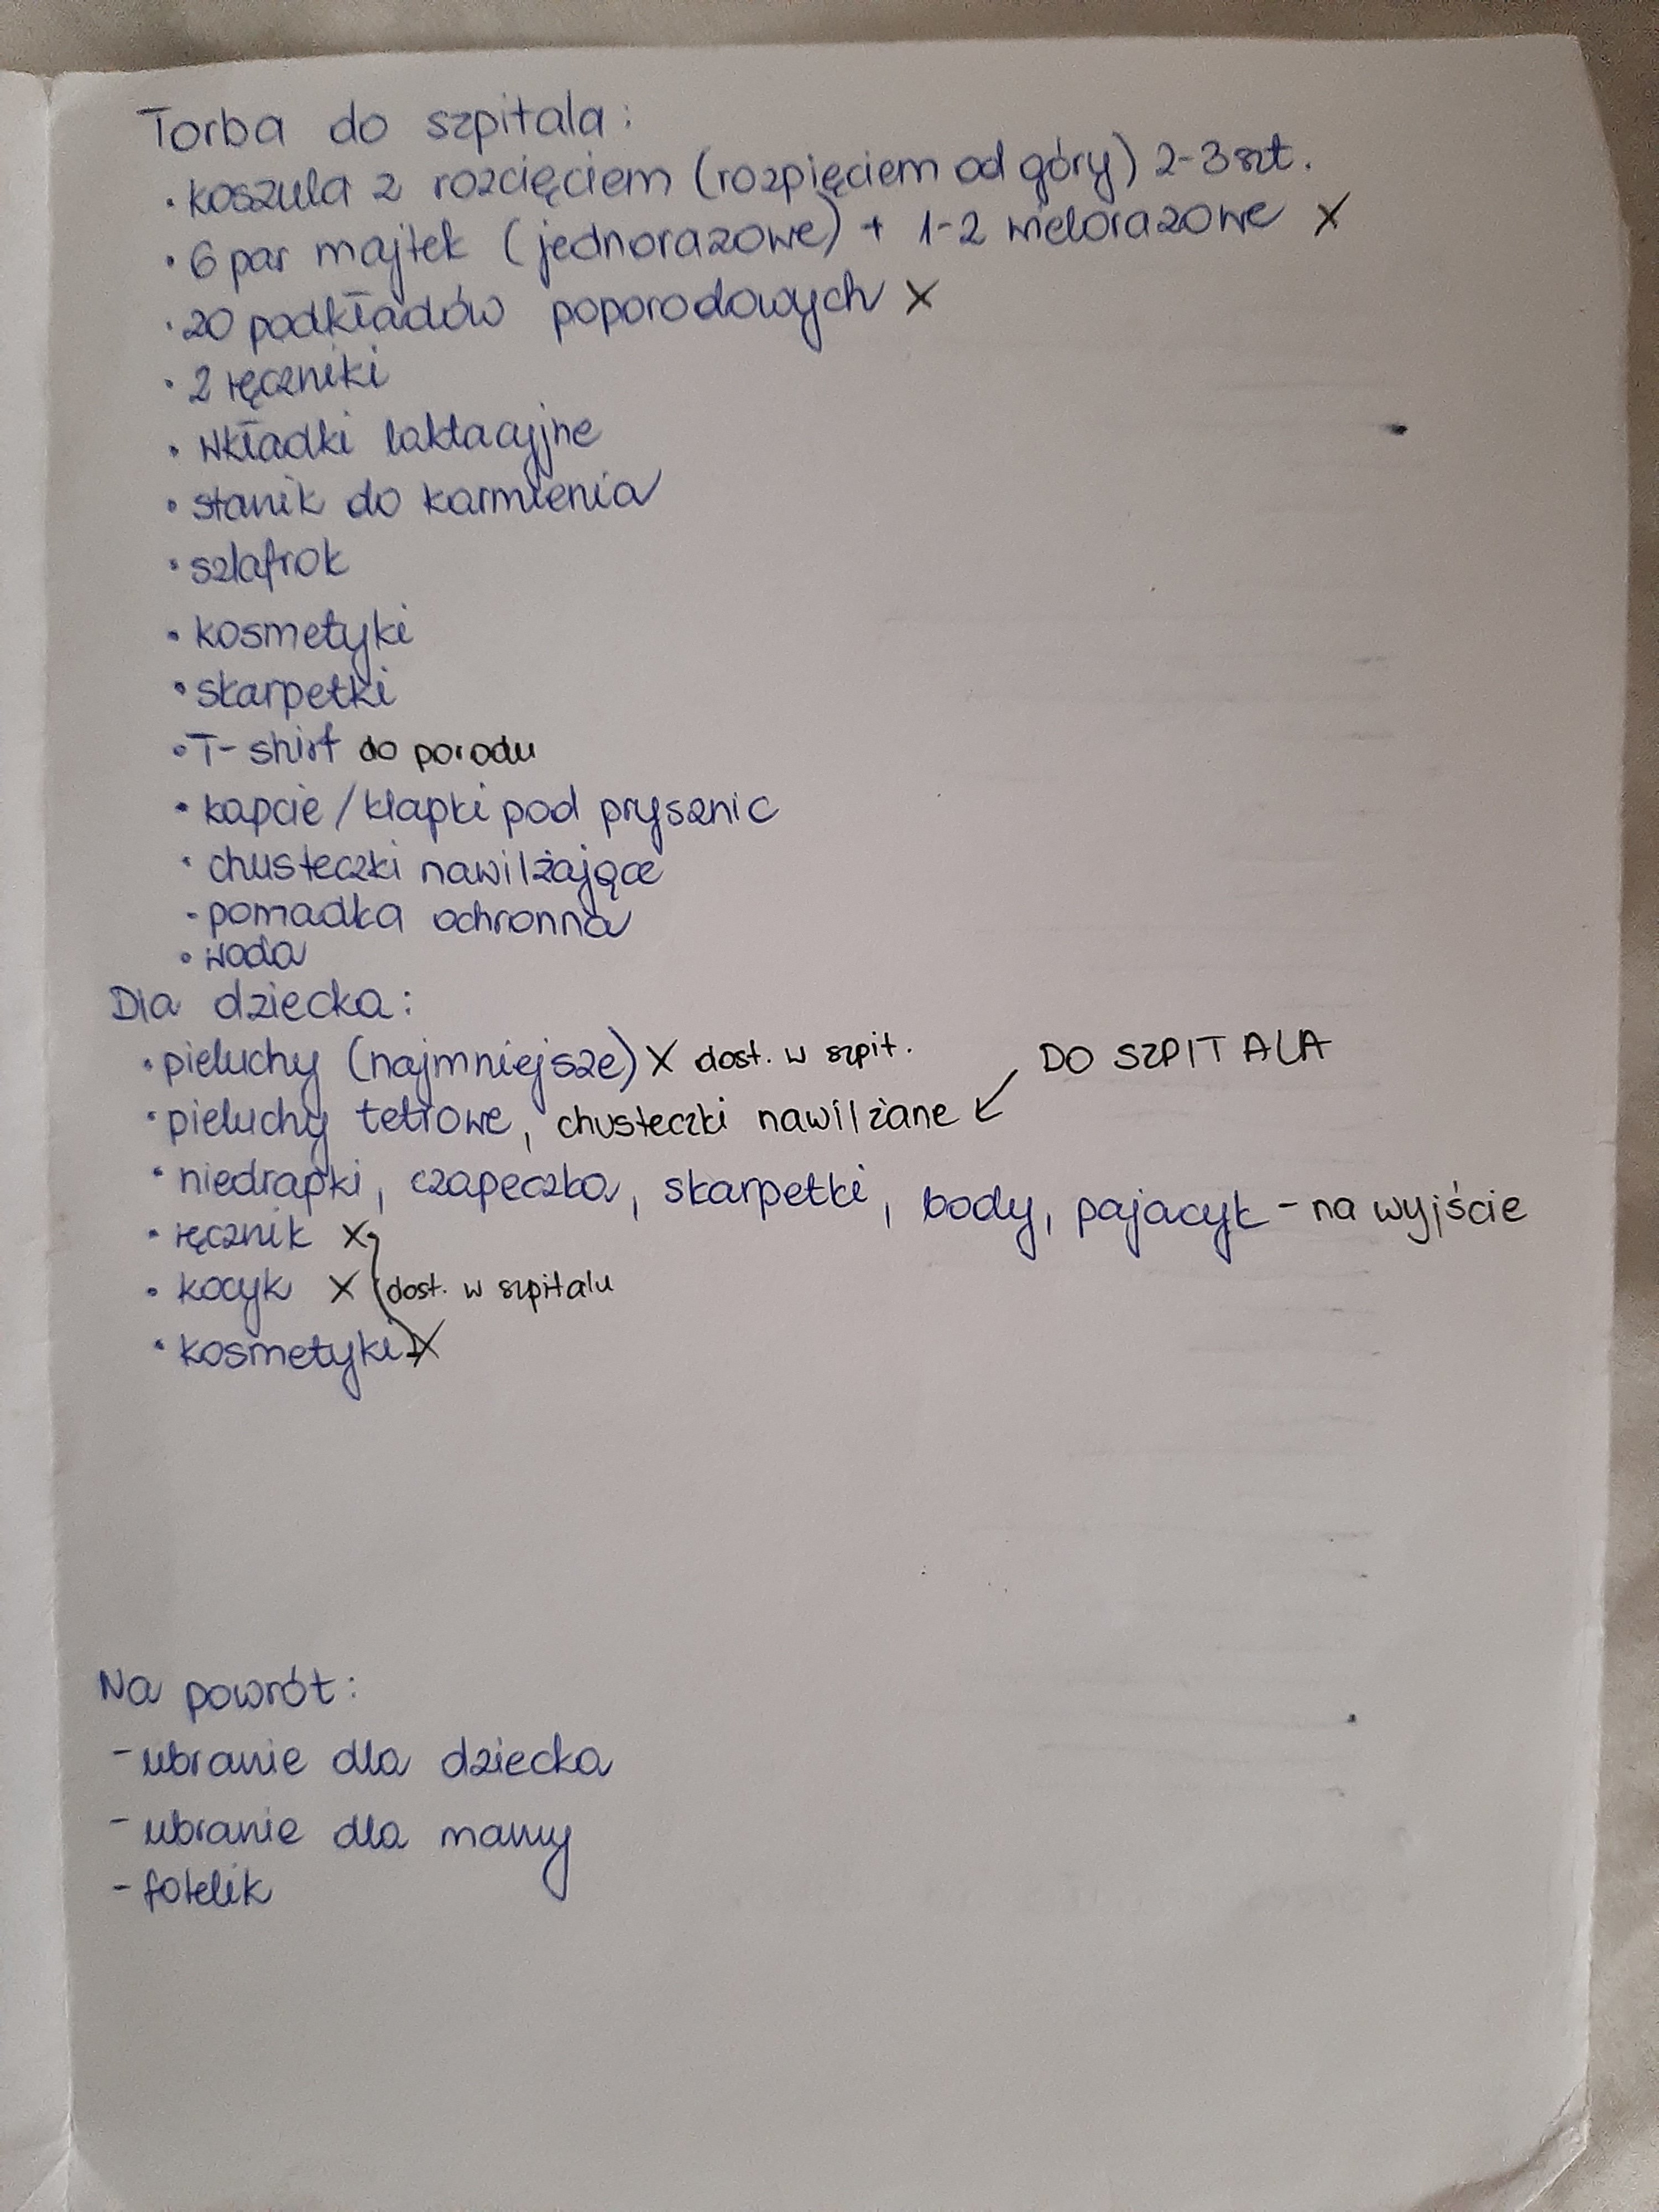 Torba do szpitala:
• koszula z rozcięciem (rozpięciem od góry) 2-3 szt.
• 6 par majtek (jednorazowe) + 1-2 wielorazowe X
• 20 podkładów poporodowych X
• 2 ręczniki
• wkładki laktacyjne
• stanik do karmienia
• szlafrok
• kosmetyki
• skarpetki
• T-shirt do porodu
• kapcie / klapki pod prysznic
• chusteczki nawilżające
- pomadka ochronna
• woda
Dla dziecka:
• pieluchy (najmniejsze) X dost. w szpit.
DO SZPITALA
• pieluchy tetrowe, chusteczki nawilżane ↙
• niedrapki, czapeczka, skarpetki, body, pajacyk - na wyjście
• ręcznik X
• kocyk X dost. w szpitalu
• kosmetyki X
Na powrót:
- ubranie dla dziecka
- ubranie dla mamy
- fotelik